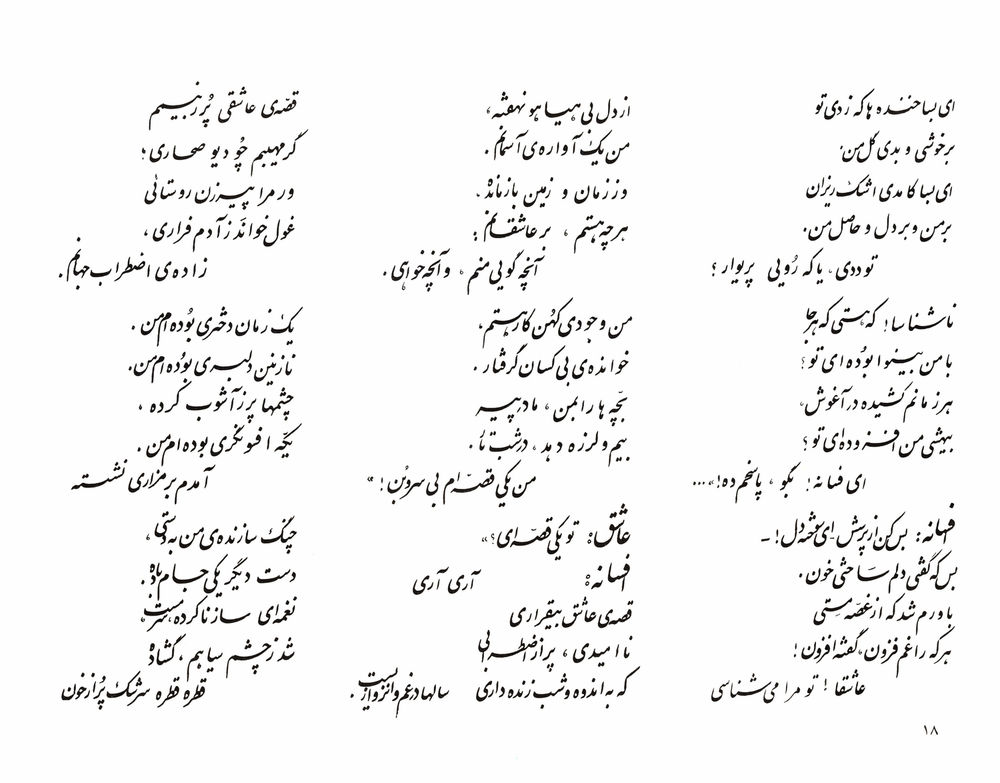 ای بسا خنده ها که زدی تو
بر خوشی و بدی گل من.
ای بسا کامدی اشک ریزان
بر من و بر دل و حاصل من.
تو ددی، یا که رُویی پریوار؟
ناشناسا! که هستی که هر جا
با من بینوا بوُده ای تو؟
هر زمانم کشیده در آغوش،
بیهشی من افزوده ای تو؟
ای فسانه! بگو، پاسخم ده!»...
افسانه: بس کن از پرسش ای سوخته دل! ـ
بس که گفتی دلم ساختی خون.
باورم شد که از غصّه مستی
هر که را غم فزون، گفته افزون!
عاشقا! تو مرا می شناسی
از دل بی هیاهو نهفته،
من یک آواره ی آسمانم.
وز زمان و زمین بازمانده،
هر چه هستم، بر عاشقانم:
آنچه گویی منم، و آنچه خواهی.
من وجودی کهن کار هستم،
خوانده ی بی کسان گرفتار.
بچّه ها را به من، مادر پیر
بیم و لرزه دهد، در شب تار.
من یکی قصّه ام بی سر و بُن!»
عاشق: تو یکی قصّه ای؟»
افسانه: آری آری
قصه ی عاشق بیقراری
ناامیدی، پر از اضطرابی
که به اندوه و شب زنده داری
سالها در غم و انزوا زیست.
قصّه ی عاشقی پُر ز بیمم
گر مهیبم چُو دیو صحاری؛
ور مرا پیرزن روستائی
غول خواند ز آدم فراری،
زاده ی اضطراب جهانم.
یک زمان دختری بوُده ام من.
نازنین دلبری بوُده ام من.
چشمها پر ز آشوب کرده،
یکّه افسونگری بوده ام من.
آمدم بر مزاری نشسته
چنگ سازنده ی من به دستی،
دست دیگر یکی جام باده.
نغمه ای ساز ناکرده، سرمست
شد ز چشم سیاهم، گشاده
قطره قطره سرشک پُر از خون
۱۸